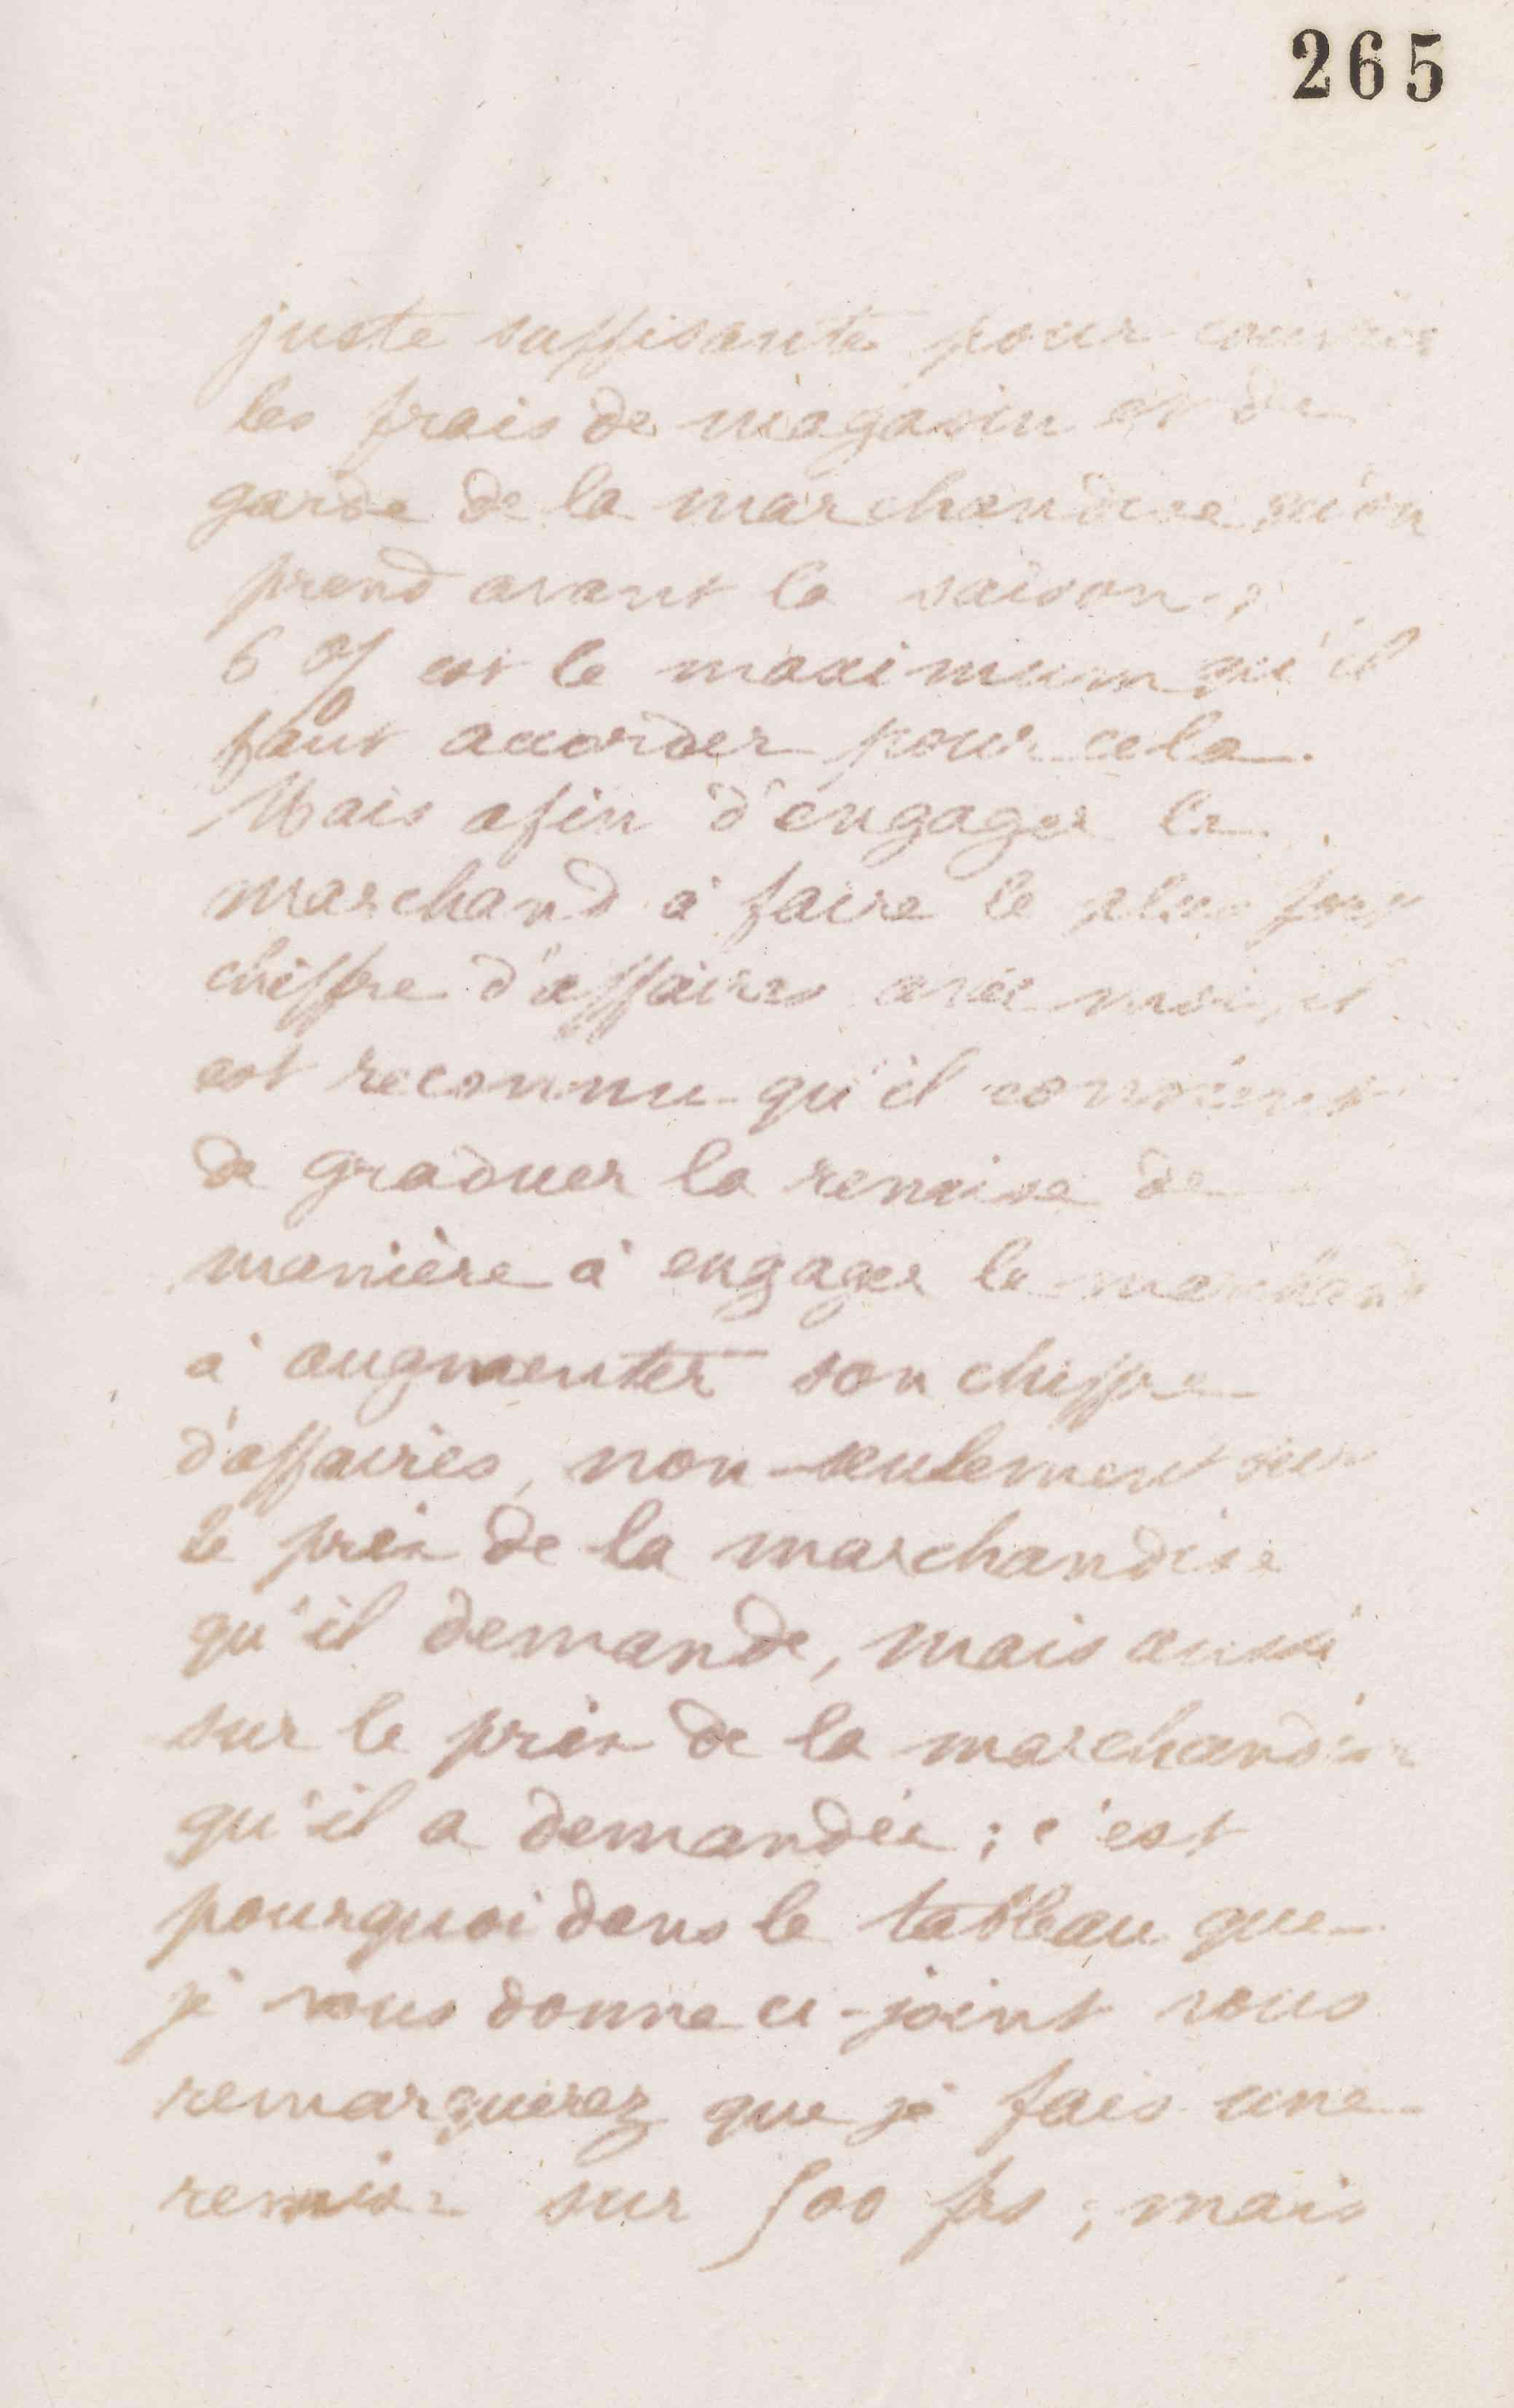 265
juste suffisante pour couvrir
les frais de magasin et de
garde de la marchandise qu'on
prend avant la saison ;
6 % est le maximum qu'il
faut accorder pour cela.
Mais afin d'engager le
marchand à faire le plus fort
chiffre d'affaires avec moi, il
est reconnu qu'il convient
de graduer la remise de
manière à engager le marchand
à augmenter son chiffre
d'affaires, non-seulement sur
le prix de la marchandise
qu'il demande, mais aussi
sur le prix de la marchandise
qu'il a demandée ; c'est
pourquoi dans le tableau que
je vous donne ci-joint vous
remarquerez que je fais une
remise sur 500 frs ; mais